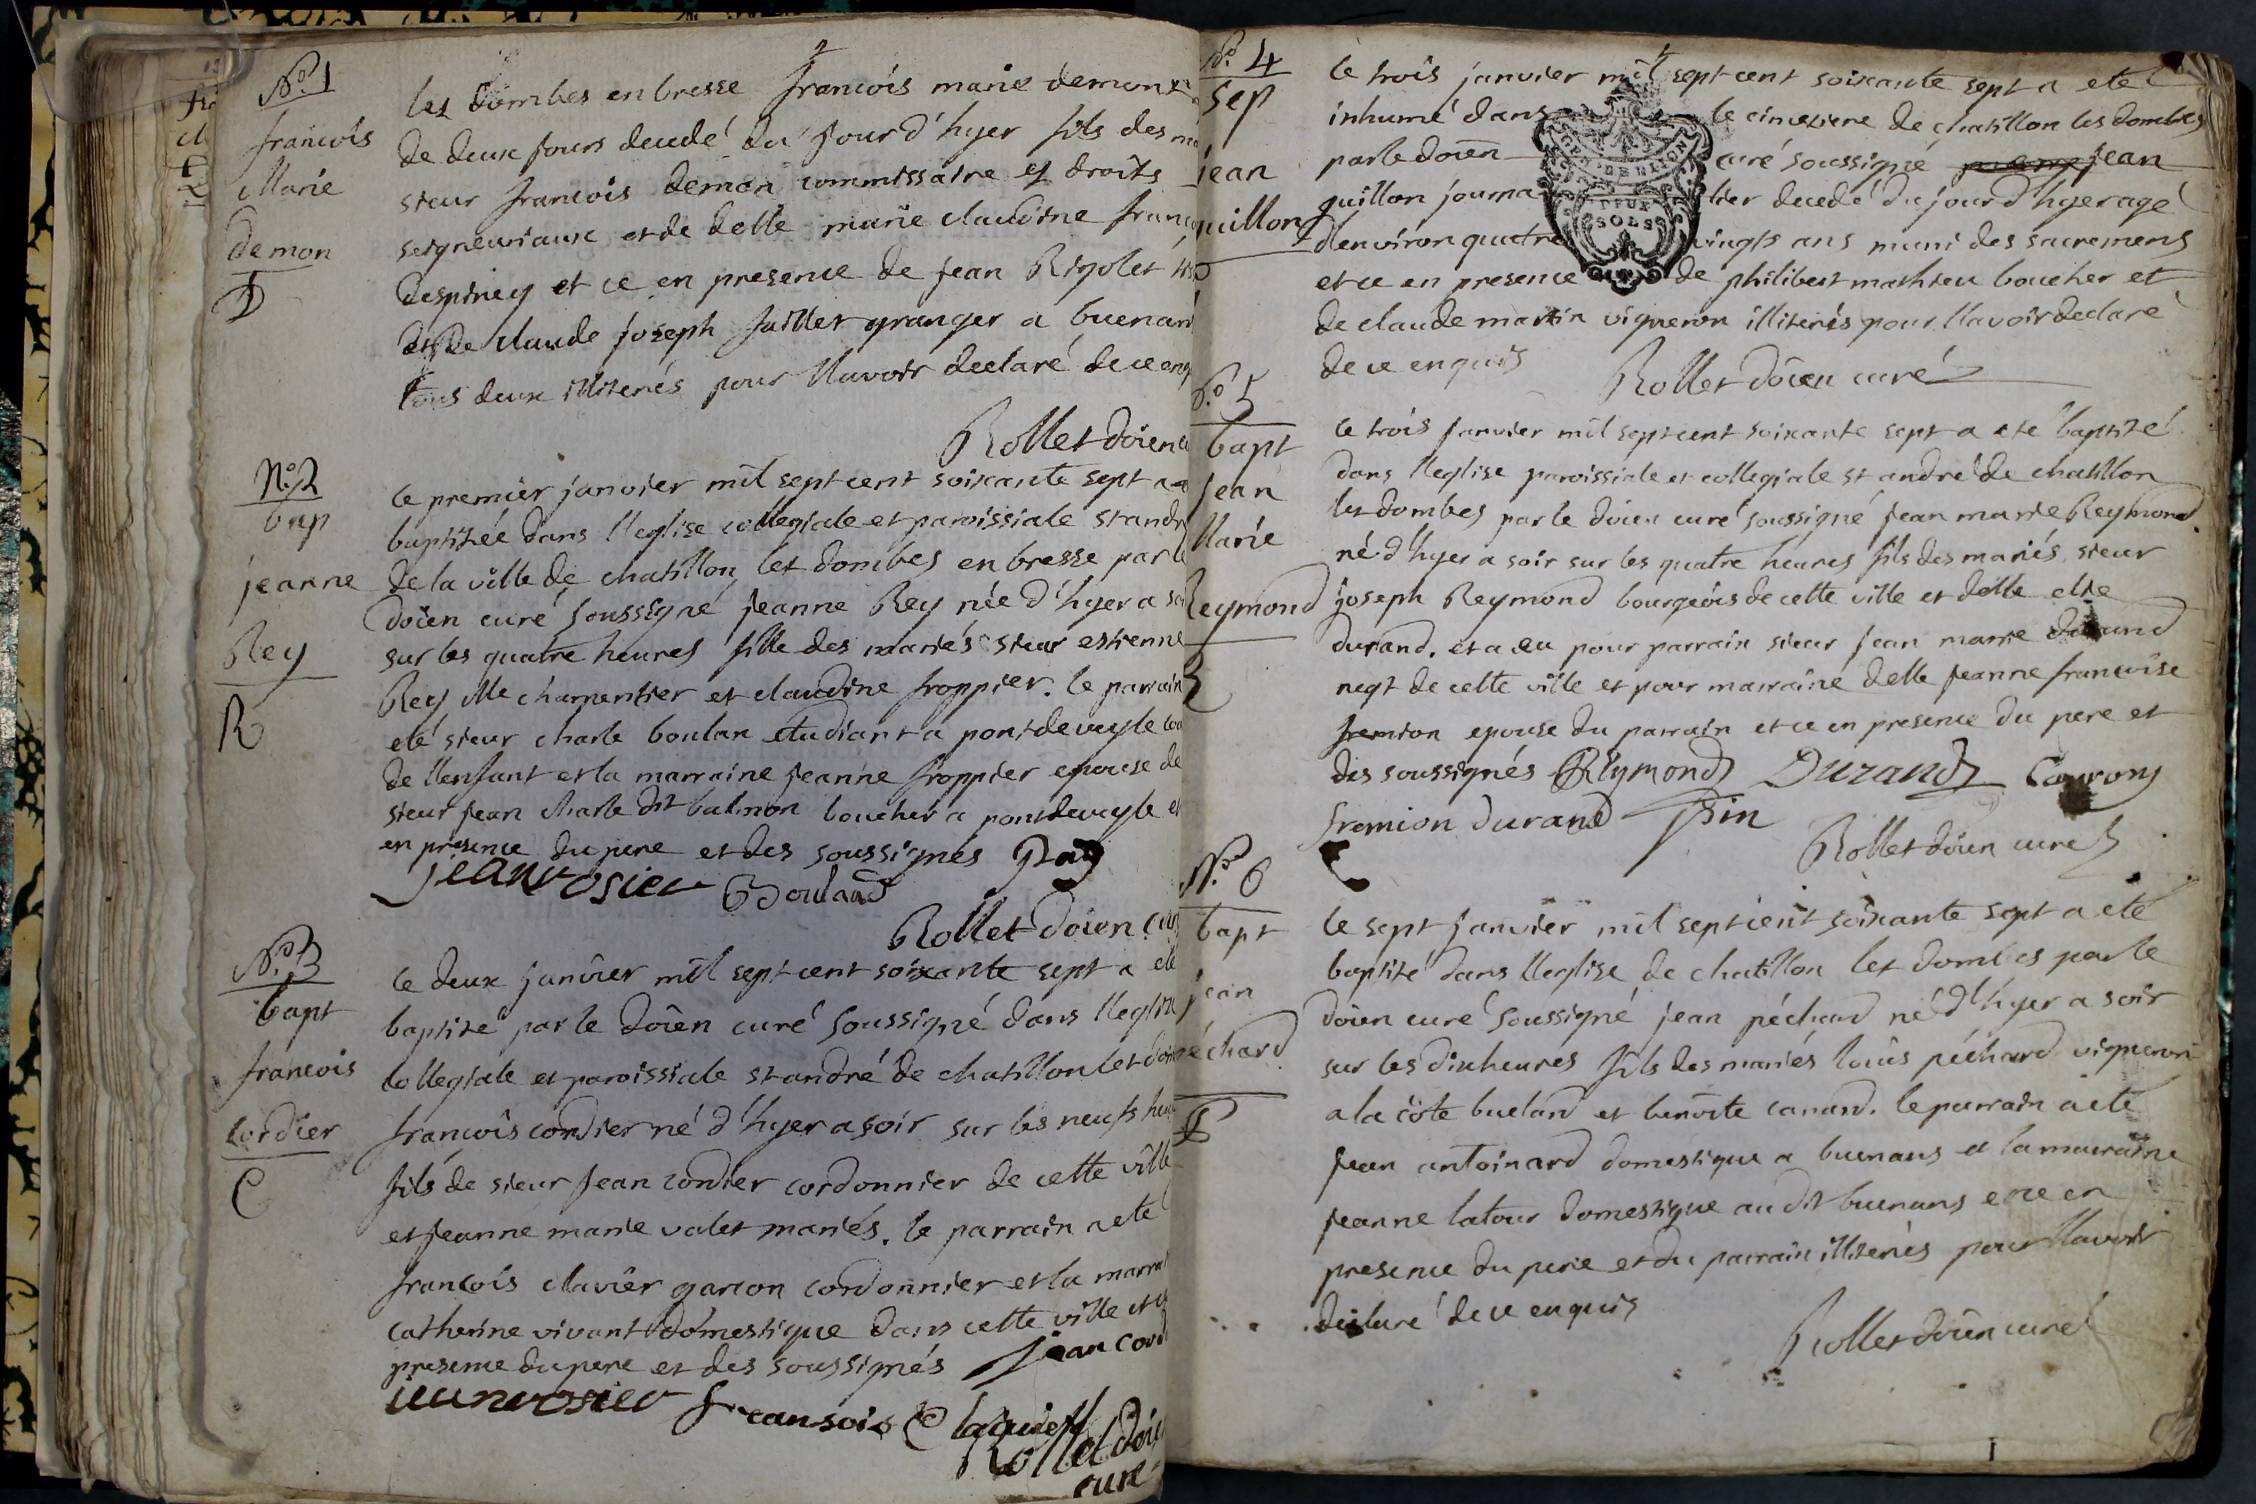 N.º 1
francois
Marie
demon
D
les dombes en bresse francois marie demon
de deux jours decedé du jour d'hyer fils des
sieur francois demon commissaire es droits
seigneuriaux et de delle marie claudine
despiney et ce en presence de jean Rigolet
et de claude joseph juillet granger a buenan
tous deux illiterés pour llavoir declaré de ce enq
Rollet doien
N.º 2
bap
jeanne
Rey
R
le premier janvier mil sept cent soixante sept a
baptizée dans lleglise collegiale et paroissiale st andré
de la ville de chatillon les dombes en bresse par le
doien curé soussigné jeanne Rey née d'hyer a soir
sur les quatre heures fille des mariés sieur estienne
Rey Me charpentier et claudine froppier. le parrain
eté sieur charle boulan etudiant a pontdevayle
de llenfant et la marraine jeanne froppier epouse de
sieur jean charle dit balmon boucher a pontdevayle et
en presence du pere et des soussignés Ray
jean rosier Bouland
Rollet doien curé
N.º 3
bapt
francois
cordier
C
le deux janvier mil sept cent soixante sept a eté
baptizé par le doien curé soussigné dans lleglize
collegiale et paroissiale st andré de chatillon les dom
francois cordier né d'hyer a soir sur les neufs heu
fils de sieur jean cordier cordonnier de cette ville
et jeanne marie valet mariés. le parrain a eté
francois clavier garcon cordonnier et la marra
catherine vivant domestique dans cette ville et ce
presence du pere et des soussignés jean cord
jean rosier fransois Clavier
Rollet doien
curé
N.º 4
sep
jean
guillon
le trois janvier mil sept cent soixante sept a eté
inhumé dans le cimeziere de chatillon les dombes
par le doien curé soussigné jean
guillon journalier decedé du jour d'hyer agé
d'environ quatre vingts ans muni des sacremens
GEN. DE LYON
DEUX
SOLS
et ce en presence de philibert mathieu boucher et
de claude martin vigneron illiterés pour llavoir declaré
de ce enquis Rollet doien curé
N.º 5
bapt
jean
Marie
Reymond
R
le trois janvier mil sept cent soixante sept a eté baptizé
dans lleglise paroissiale et collegiale st andré de chatillon
les dombes par le doien curé soussigné jean marie Reymond
né d'hyer a soir sur les quatre heures fils des mariés sieur
joseph Reymond bourgeois de cette ville et delle
durand. et a eu pour parrain sieur jean marie durand
negt de cette ville et pour marraine delle jeanne francoise
fremion epouse du parrain et ce en presence du pere et
des soussignés Reymond Durand
fremion durand
Rollet doien curé
N.º 6
bapt
jean
péchard
P
le sept janvier mil sept cent soixante sept a eté
baptizé dans lleglise de chatillon les dombes par le
doien curé soussigné jean péchard né d'hyer a soir
sur les dix heures fils des mariés louis péchard vigneron
a la côte buelard et benoite canard. le parrain a eté
jean antoinard domestique a buenans et la marraine
jeanne latour domestique au dit buenans et ce en
presence du pere et du parrain illiterés pour llavoir
declaré de ce enquis
Rollet doien curé